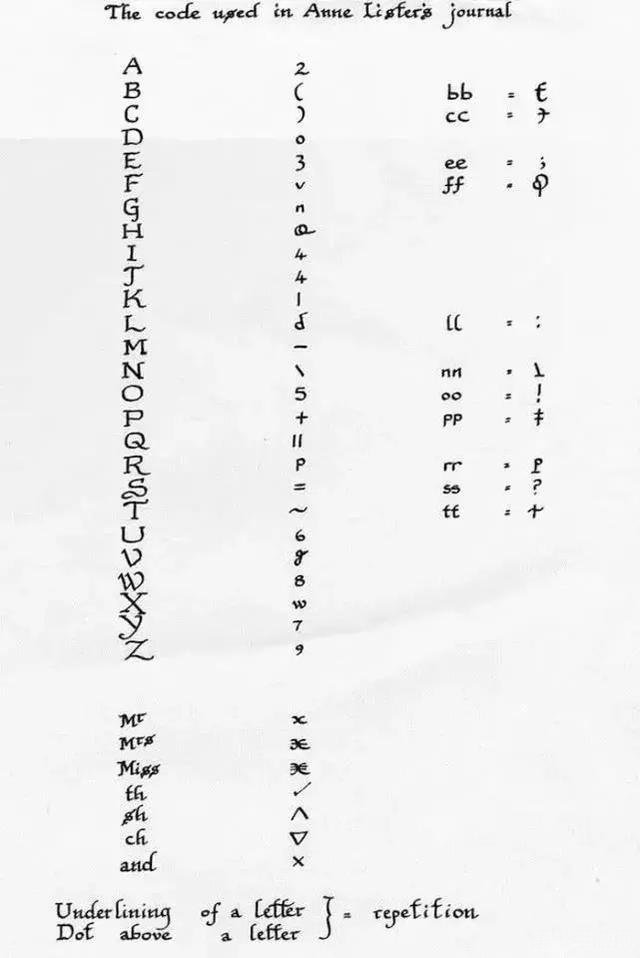 The code used in Anne Lister's journal
A 2
B ( bb = ŧ
C ) cc = 
D o
E 3 ee = ;
F v ff = 
G n
H 
I 4
J 4
K |
L d ll = :
M –
N \ nn = 
O 5 oo = !
P + pp = ‡
Q ||
R p rr = 
S = ss = ?
T ~ tt = 
U 6
V g
W 8
X w
Y 7
Z 9
Mr x
Mrs
Miss
th ✓
sh ^
ch ▽
and ×
Underlining of a letter } = repetition
Dot above a letter